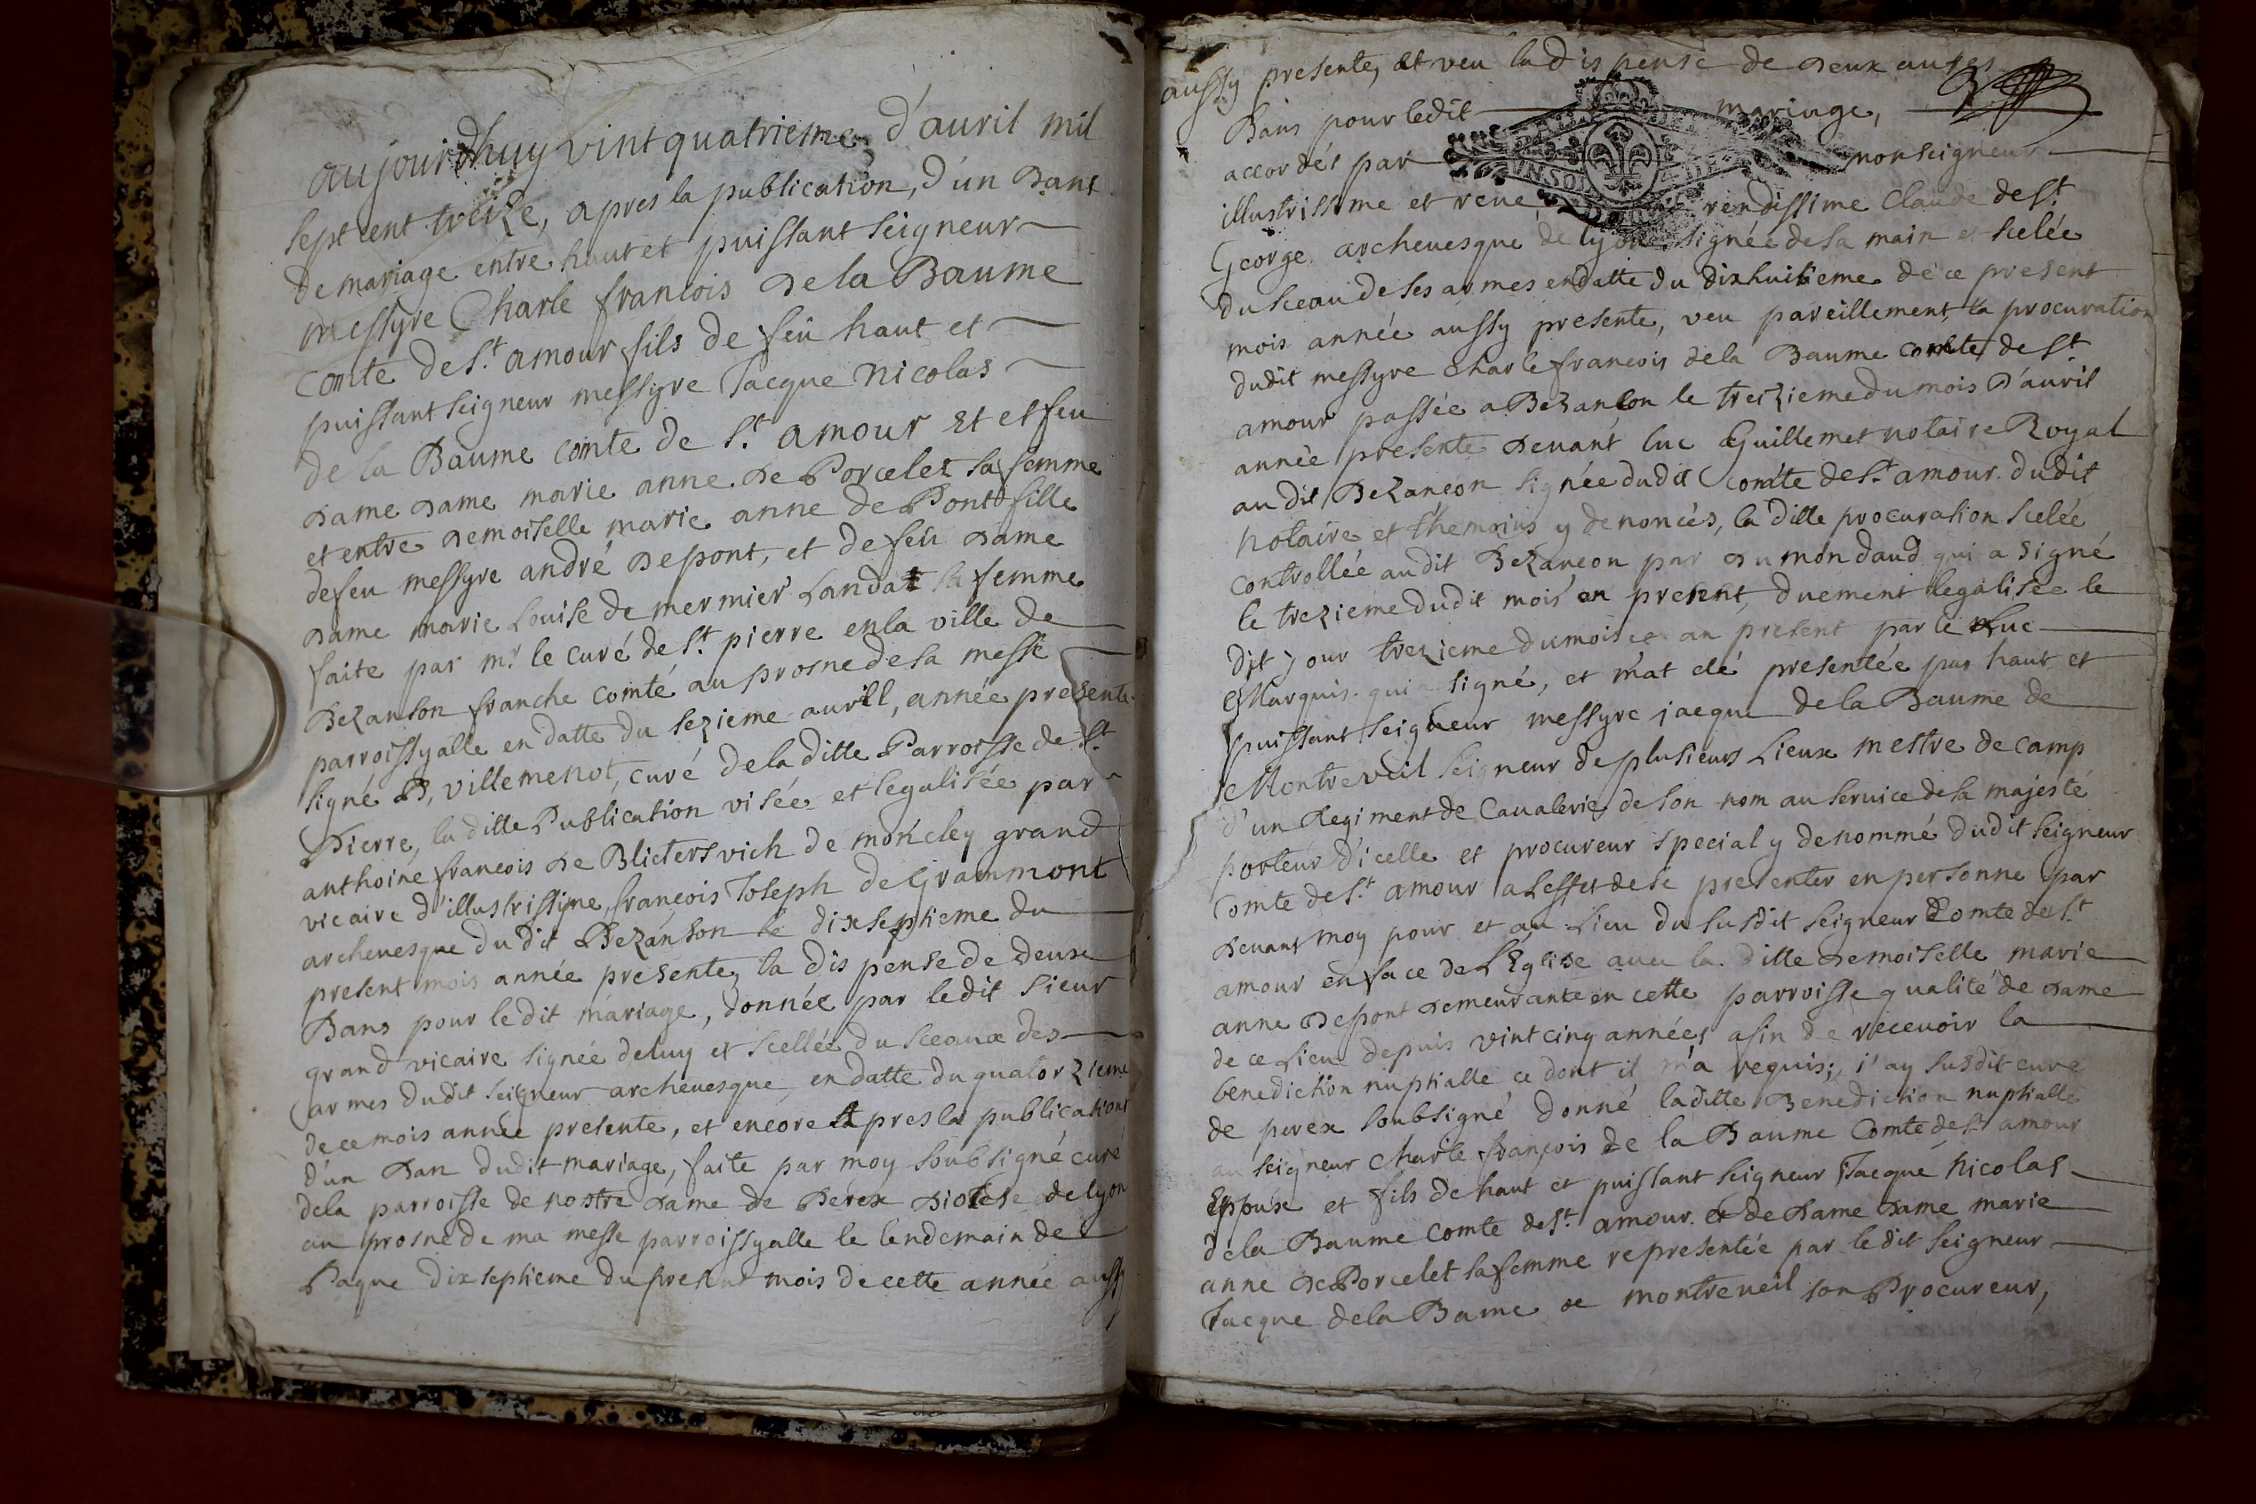 aujourdhuy vint quatrieme d'auril mil
sept cent treize, apres la publication, d'un Bant
de mariage entre haut et puissant seigneur
messyre Charle francois de la Baume
comte de St. amour fils de feü haut et
puissant seigneur messyre Jacque nicolas
de la Baume comte de St. amour Et et feu
dame dame marie anne de Porcelet sa femme
et entre demoiselle marie anne de Pont fille
de feu messyre andré depont, et de feü dame
dame marie Louise de mermier Landat sa femme
faite par mr. le curé de St. pierre en la ville de
Bezanson franche comté au prosne de la messe
parroissyalle en datte du sezieme aurill, année presente
signé B, villemenot, curé de la ditte Parroisse de St.
Pierre, la ditte Publication visée et legalisée par
anthoine francois de Blictersvich de moncley grand
vicaire d'illustrissime, françois Joseph de Grammont
archeuesque dudit Bezanson le dix septieme du
present mois année presente, la dispense de deux
Bans pour le dit mariage, donnée par le dit sieur
grand vicaire signée de luy et scellée du sceaux des
armes dudit seigneur archeuesque en datte du quatorzieme
de ce mois année presente, et encore Apres la publication
d'un Ban dudit mariage, faite par moy soubsigné curé
dela parroisse de nostre dame de Perex diocese de lyon
au prosne de ma messe parroissyalle le lendemain de
Paque dix septieme du present mois de cette année aussy
aussy presente, et veu la dispense de deux autres
Bans pour ledit mariage,
accordés par monseigneur
illustrissime et reue rendissime Claude de St.
George archeuesque de lyon signée de sa main et scelée
du sceau de ses armes en datte du dixhuitieme de ce present
mois année aussy presente, veu pareillement la procuration
dudit messyre Charle francois dela Baume comte de St
amour passée a Bezancon le treizieme du mois d'auril
année presente deuant luc Guillemet notaire Royal
audit Bezancon signée dudit comte de St. amour dudit
notaire et themoins y denoncés, la ditte procuration scelée
controllée audit Bezancon par dumondaud qui a signé
le trezieme dudit mois an present, duement legalisée le
dit jour trezieme du mois et an present par le Luc
Marquis qui a signé, et m'at eté presentée par haut et
puissant seigneur messyre jacque de la Baume de
Montreveil seigneur de plusieurs Lieux mestre de camp
d'un Regiment de Caualerie de son nom au seruice de sa majesté
porteur d'icelle et procureur special y denommé dudit seigneur
Comte de St. amour a L'effet de se presenter en personne par
deuant moy pour et au Lieu du susdit seigneur Comte de St.
amour en face de L'Eglise auec la ditte demoiselle marie
anne depont demeurante en cette parroisse qualité de dame
de ce Lieu depuis vint cinq années afin de receuoir la
benediction nuptialle ce dont il m'a requis; j'ay susdit curé
de perex soubsigné donné laditte Benediction nuptialle
au seigneur Charle françois de la Baume Comte de St. amour
Eppoux et fils de haut et puissant seigneur Jacque Nicolas
dela Baume comte de St. amour et de dame dame marie
anne de Porcelet sa femme representée par le dit seigneur
Jacque dela Bame de montreueil son Procureur,